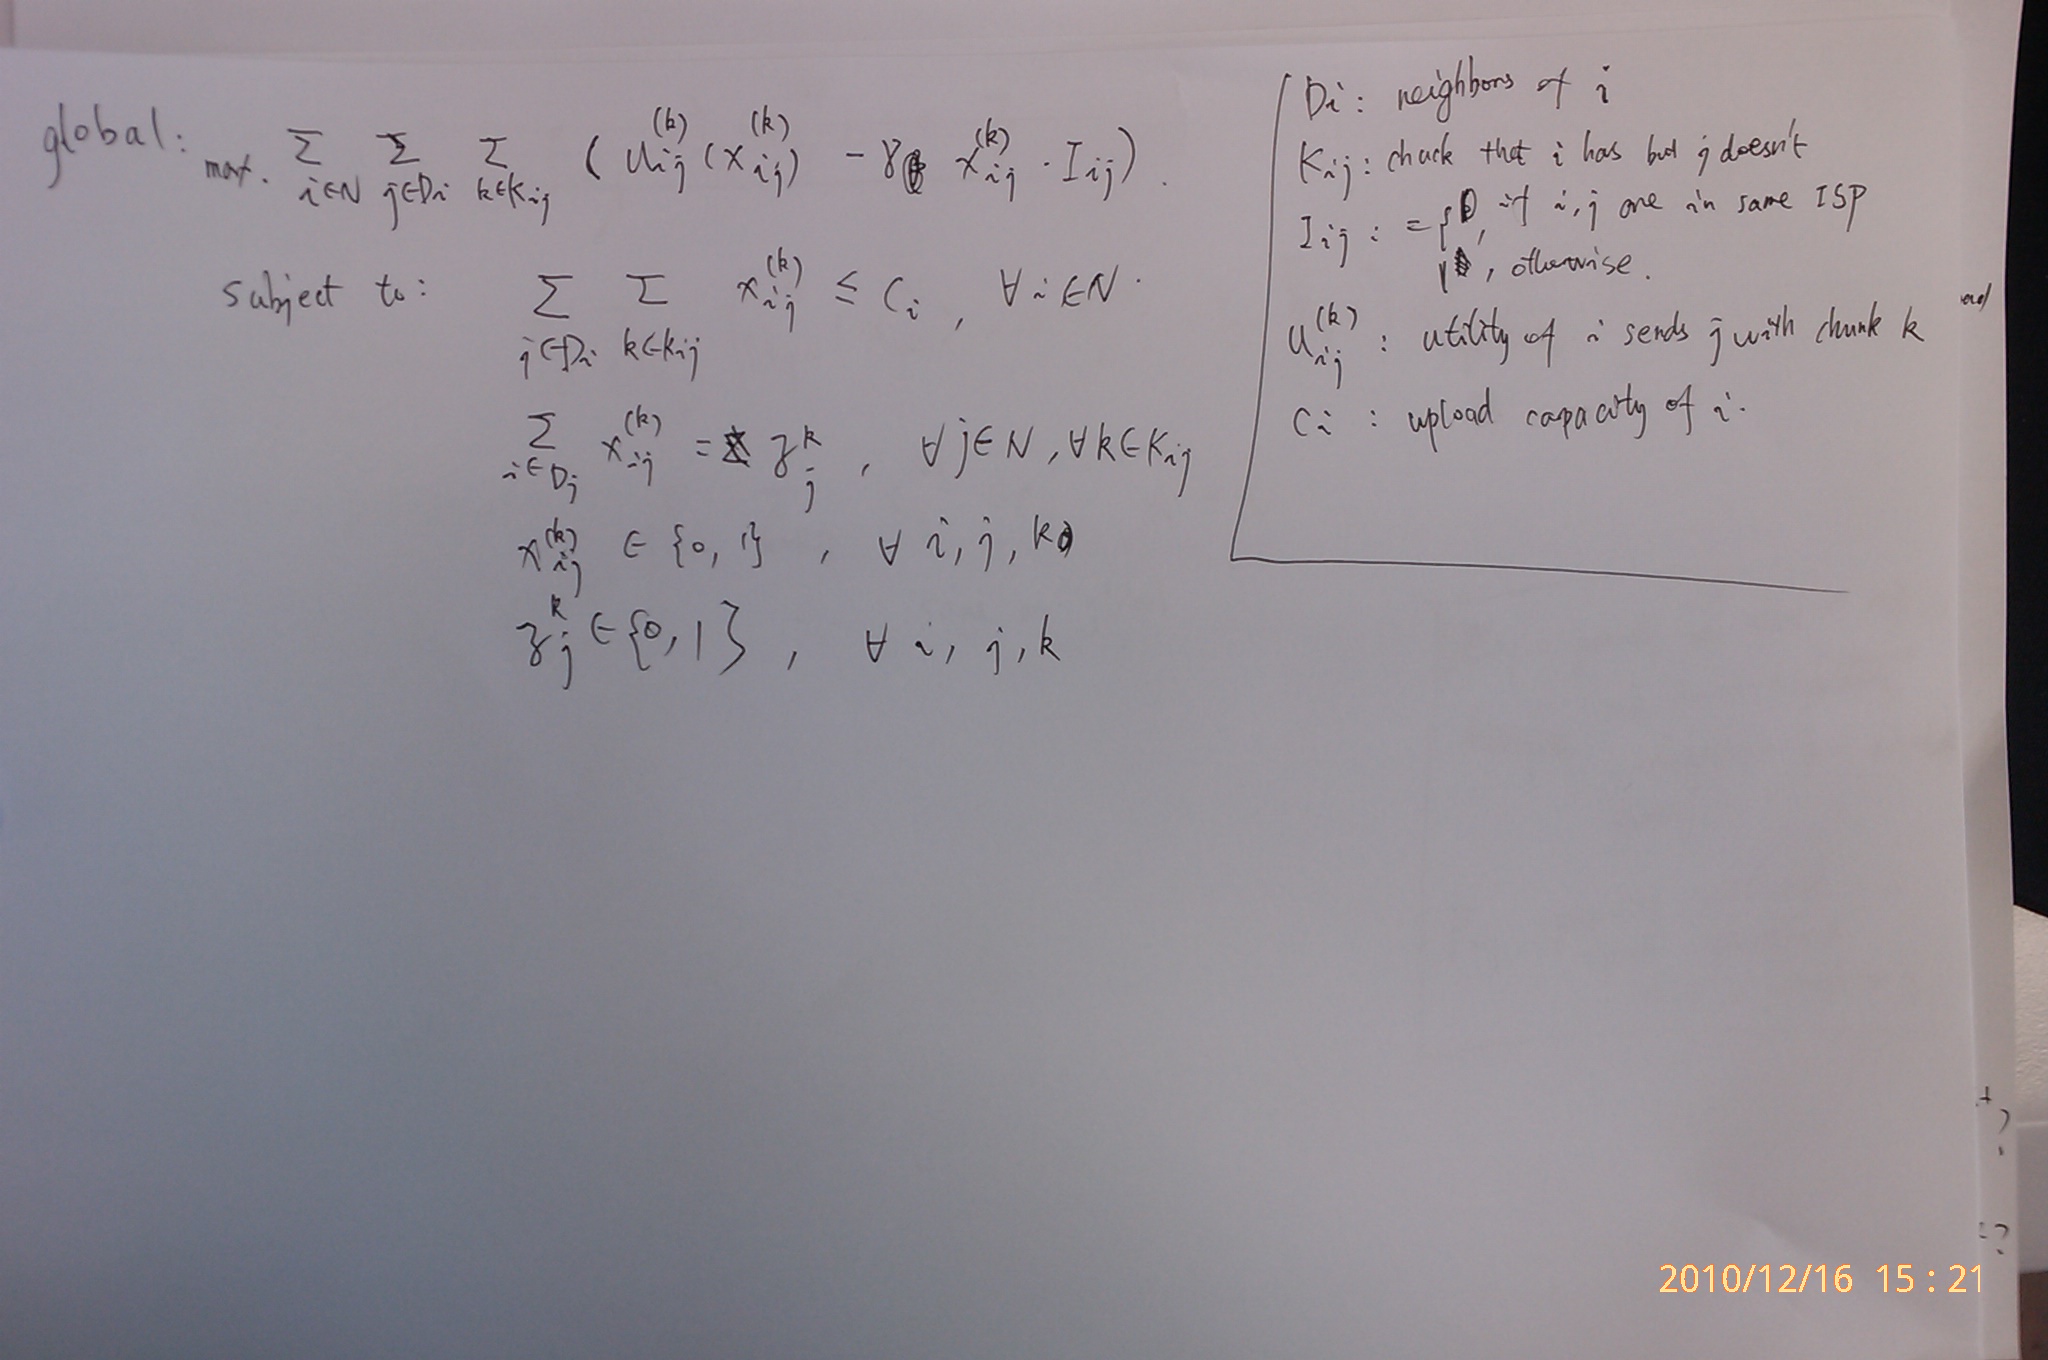 global: max. Σ_{i∈N} Σ_{j∈Di} Σ_{k∈Kij} ( u_{ij}^{(k)} (x_{ij}^{(k)}) - γ x_{ij}^{(k)} · I_{ij} ).
subject to: Σ_{j∈Di} Σ_{k∈Kij} x_{ij}^{(k)} ≤ C_i , ∀ i ∈ N.
Σ_{i∈Dj} x_{ij}^{(k)} = z_j^k , ∀ j ∈ N, ∀ k ∈ K_{ij}
x_{ij}^{(k)} ∈ {0, 1} , ∀ i, j, k
z_j^k ∈ {0, 1} , ∀ i, j, k
Di : neighbors of i
Kij : chuck that i has but j doesn't
Iij : = { 0, if i, j are in same ISP
1, otherwise.
u_{ij}^{(k)} : utility of i sends j with chunk k
Ci : upload capacity of i.
2010/12/16 15:21